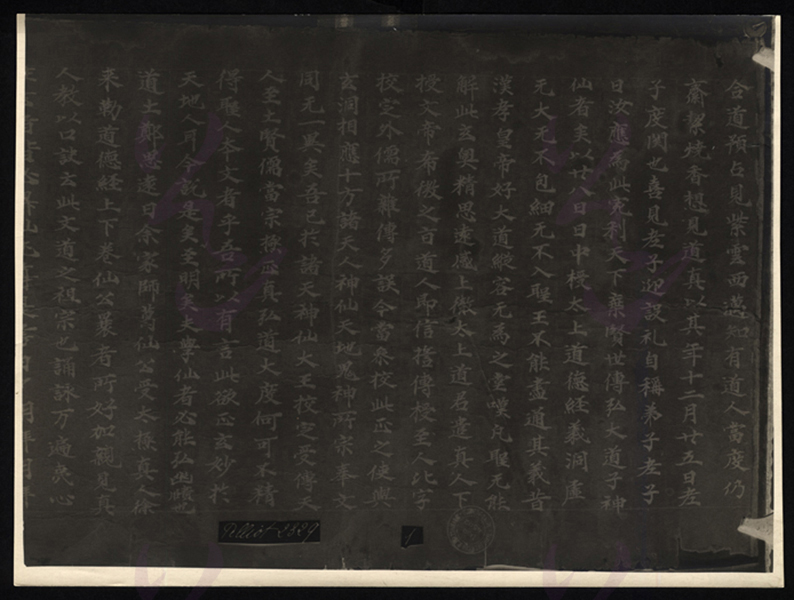 合道預占見紫雲西邁知有道人當度仍
齋潔燒香想見道真以其年十二月廿五日老
子度関也喜見老子迎設礼自稱弟子老子
曰汝應為此宛利天下棄賢世傳弘大道子神
仙者矣以廿八日日中授太上道德經義洞虛
无大无不包細无不入聖王不能盡通其義昔
漢孝皇帝好大道縱容无為之堂嘆凡聖无能
解此玄奧精思遠感上徹太上道君遣真人下
授文帝希微之旨道人即信誓傳授至人比字
校定外儒所雜傳多誤今當參校此正之使與
玄洞相應十方諸天人神仙天地鬼神所宗奉文
同无一異矣吾已於諸天神仙大王校定受傳天
人至士賢儒當宗極正真弘道大度何可不精
得聖人本文者乎吾所以有言此欲正玄妙於
天地人耳今說是矣至明矣夫學仙者必能弘
道士鄭思遠曰余家師葛仙公受太極真人徐
来勒道德經上下卷仙公曩者所好加親見真
人教以口訣云此文道之祖宗也誦詠万遍夷心
Pelliot 2329
1